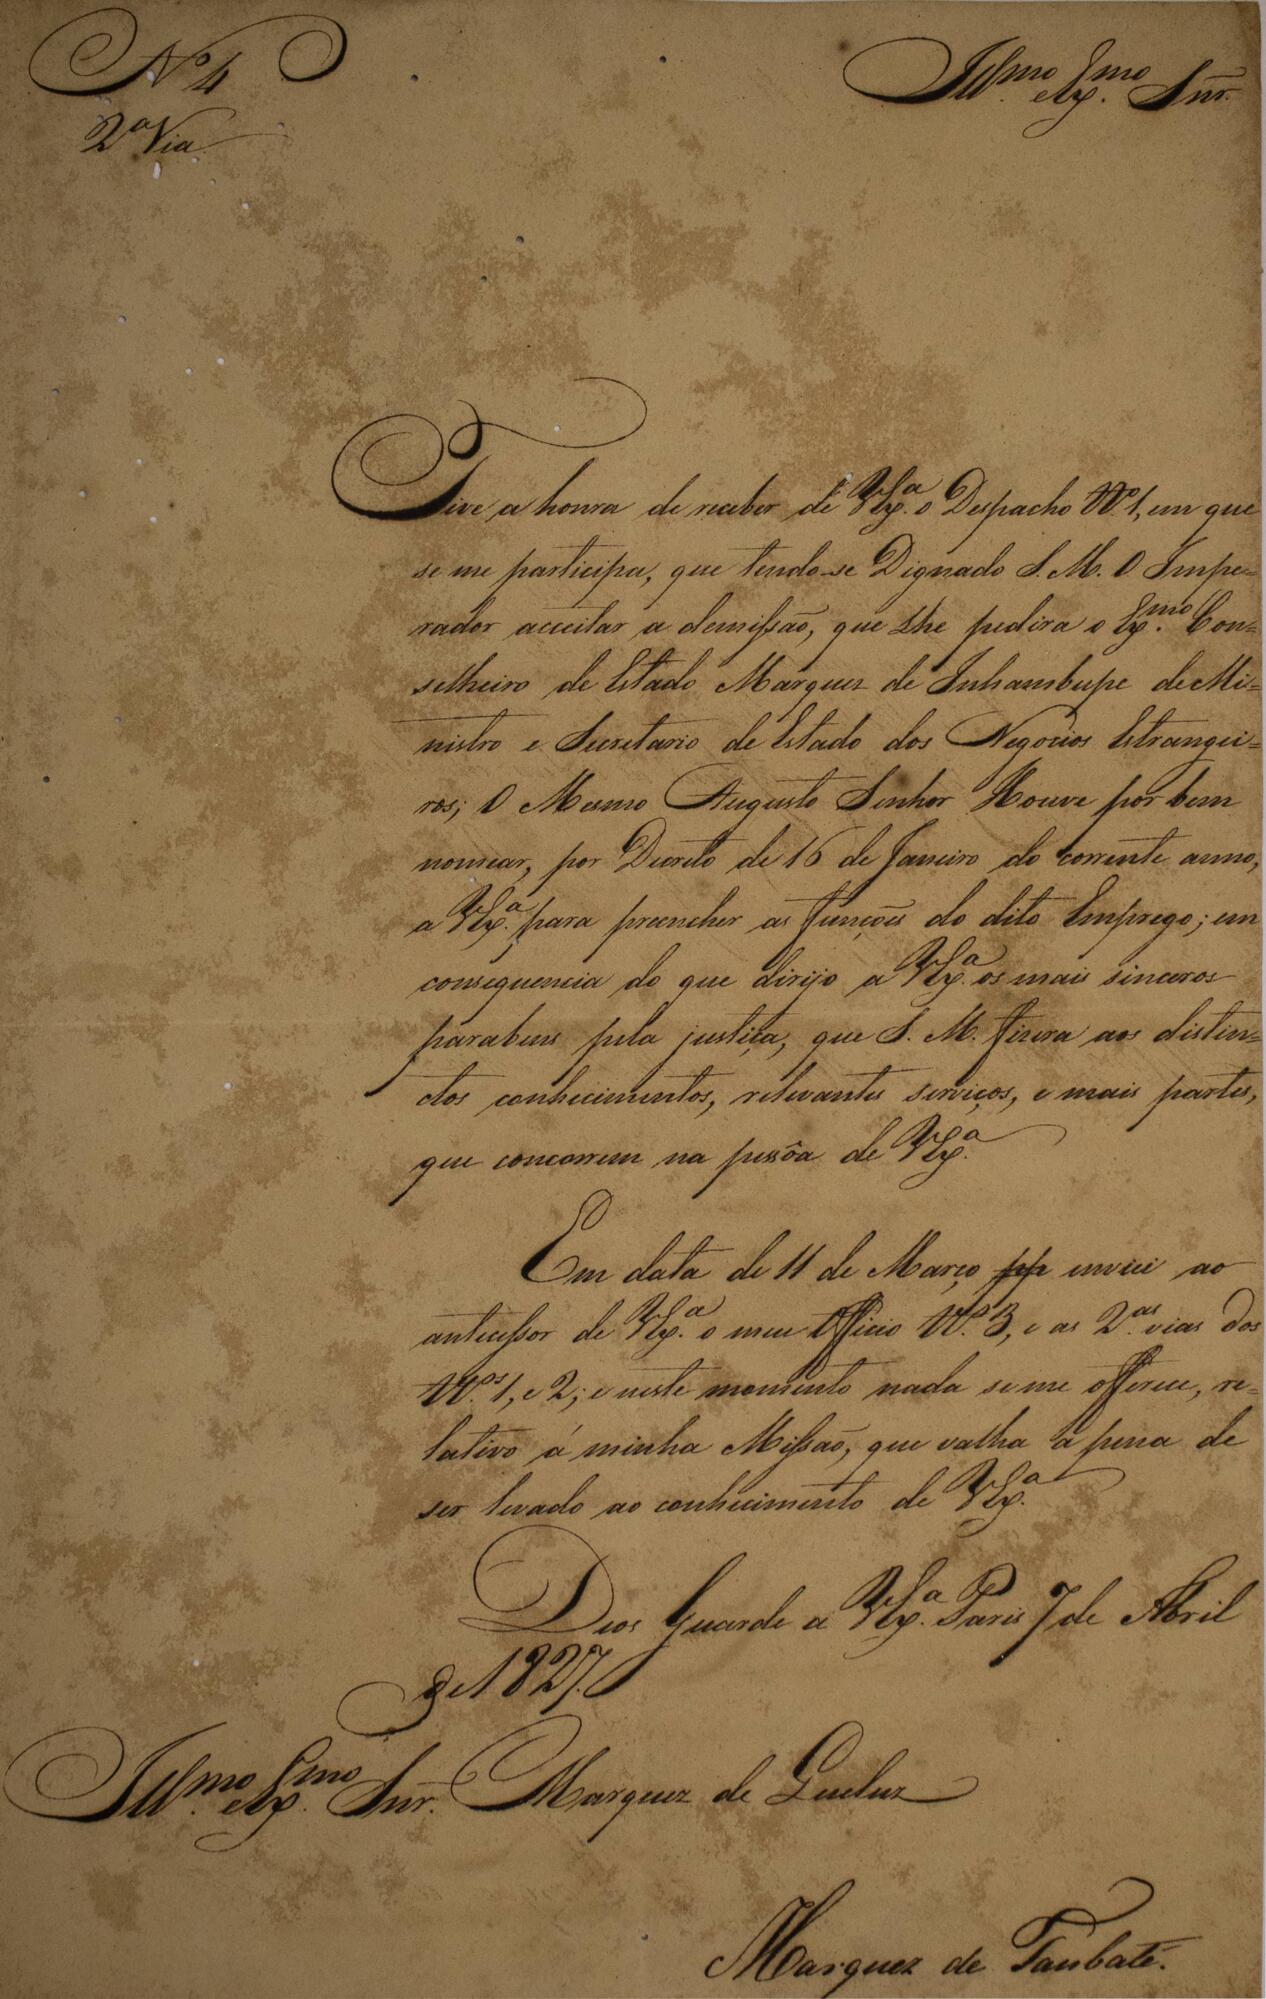 Nº 4
2ª Via
Illmo. Exmo. Snr.
Tive a honra de receber de VExª. o Despacho Nº. 1, em que
se me participa, que tendo-se Dignado S. M. O Impe=
rador acceitar a demissão, que Lhe pedira o Exmo. Con=
selheiro de Estado Marquez de Inhambupe de Mi=
nistro e Secretario de Estado dos Negocios Estrangei=
ros; O Mesmo Augusto Senhor Houve por bem
nomear, por Decreto de 16 de Janeiro do corrente anno,
a VExª. para preencher as funçoẽs do dito Emprego; em
consequencia do que dirijo a VExª. os mais sinceros
parabens pela justiça, que S. M. fizera aos distin=
ctos conhecimentos, relevantes serviços, e mais partes,
que concorrem na pessôa de VExª.
Em data de 11 de Março pp enviei ao
antecessor de VExª. o meu Officio Nº. 3, e as 2.as vias dos
Nos. 1, e 2; e neste momento nada se me offerece, re=
lativo á minha Missaõ, que valha a pena de
ser levado ao conhecimento de VExª.
Deos Guarde a VExª. Paris 7 de Abril
de 1827.
Illmo. Exmo. Snr. Marquez de Queluz
Marquez de Taubaté.